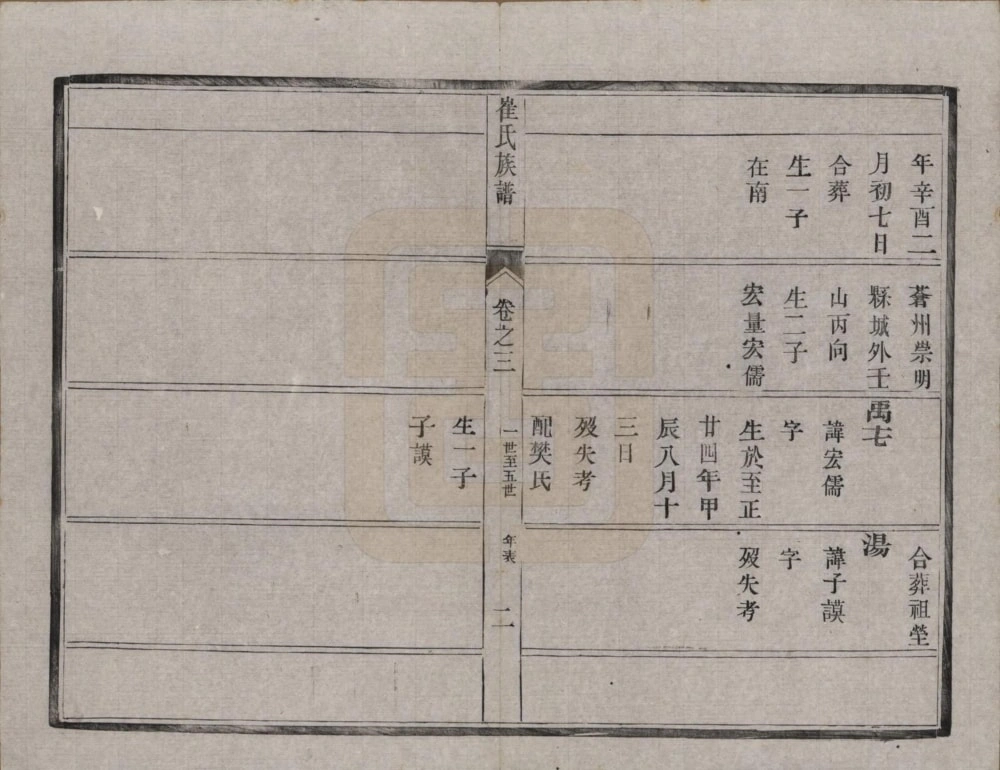 年辛酉二
月初七日
合葬
生一子
在南
蒼州崇明
縣城外壬
山丙向
生二子
宏量宏儒
禹七
諱宏儒
字
生於至正
廿四年甲
辰八月十
三日
歿失考
配樊氏
生一子
子謨
合葬祖塋
湯
諱子謨
字
歿失考
崔氏族譜
卷之三
一世至五世
年表
二